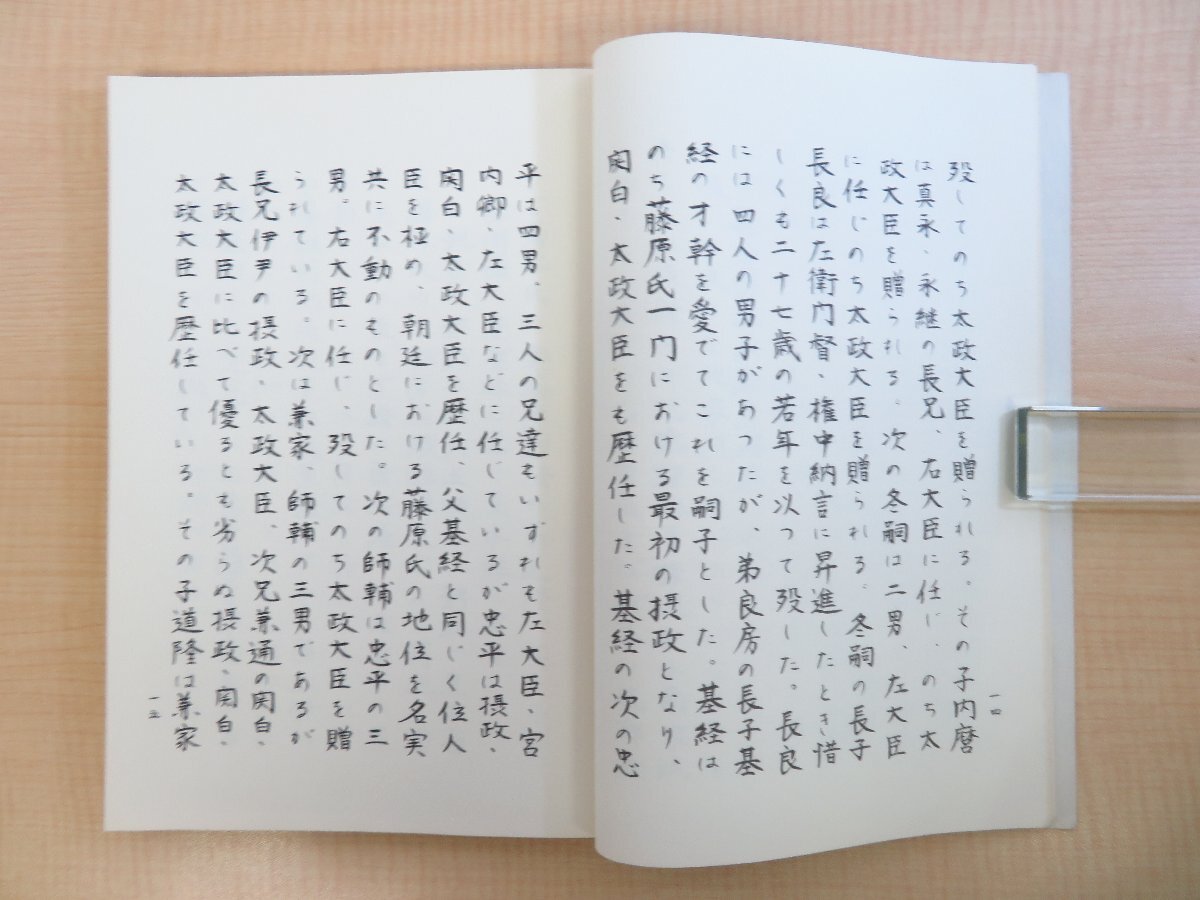 歿してのち太政大臣を贈られる。その子内麿
は真永、永継の長兄、右大臣に任じ、のち太
政大臣を贈られる。次の冬嗣は二男、左大臣
に任じのち太政大臣を贈られる。冬嗣の長子
長良は左衛門督、権中納言に昇進したとき惜
しくも二十七歳の若年を以つて歿した。長良
には四人の男子があつたが、弟良房の長子基
経の才幹を愛でてこれを嗣子とした。基経は
のち藤原氏一門における最初の摂政となり、
関白、太政大臣をも歴任した。基経の次の忠
一四
平は四男、三人の兄達もいずれも左大臣、宮
内卿、左大臣などに任じているが忠平は摂政、
関白、太政大臣を歴任、父基経と同じく位人
臣を極め、朝廷における藤原氏の地位を名実
共に不動のものとした。次の師輔は忠平の三
男。右大臣に任じ、歿してのち太政大臣を贈
られている。次は兼家、師輔の三男であるが
長兄伊尹の摂政、太政大臣、次兄兼通の関白、
太政大臣に比べて優るとも劣らぬ摂政、関白、
太政大臣を歴任している。その子道隆は兼家
一五